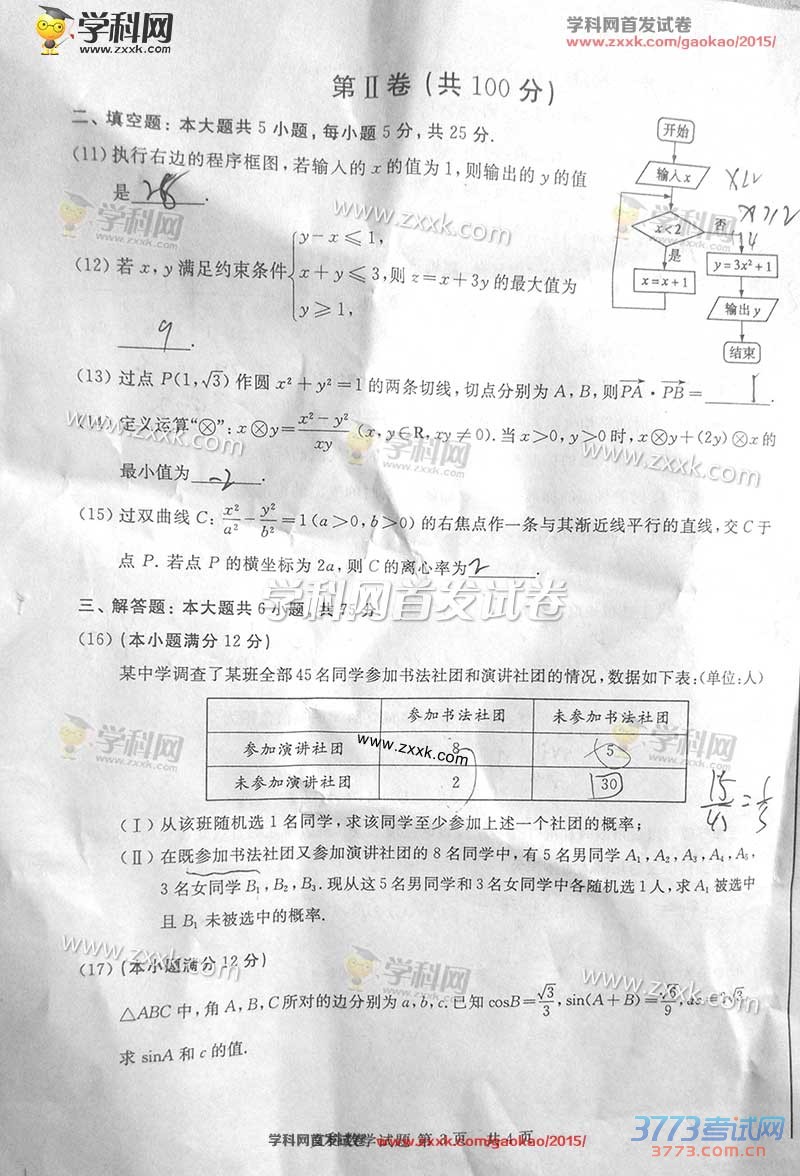 学科网
www.zxxk.com
学科网首发试卷
www.zxxk.com/gaokao/2015/
第Ⅱ卷(共100分)
二、填空题：本大题共5小题，每小题5分，共25分.
(11)执行右边的程序框图，若输入的x的值为1，则输出的y的值
是
开始
输入x
x<2
否
是
x=x+1
y=3x²+1
输出y
结束
14
学科网
www.zxxk.com
(12)若x，y满足约束条件{y-x⩽1,
x+y⩽3,则z=x+3y的最大值为
y⩾1,
9.
(13)过点P(1,√3)作圆x²+y²=1的两条切线，切点分别为A，B，则PA→·PB→=
www.zxxk.com
学科网
www.zxxk.com
定义运算“⊗”：x⊗y=(x²-y²)/xy (x,y∈R,xy≠0).当x>0,y>0时，x⊗y+(2y)⊗x的
最小值为 -2 .
(15)过双曲线C：x²/a²-y²/b²=1(a>0,b>0)的右焦点作一条与其渐近线平行的直线，交C于
点P.若点P的横坐标为2a，则C的离心率为 2 .
学科网首发试卷
三、解答题：本大题共6小题，共75分
(16)(本小题满分12分)
某中学调查了某班全部45名同学参加书法社团和演讲社团的情况，数据如下表：(单位：人)
学科网
www.zxxk.com
参加书法社团 未参加书法社团
参加演讲社团 8 5
未参加演讲社团 2 30
15/45=1/3
(Ⅰ)从该班随机选1名同学，求该同学至少参加上述一个社团的概率；
(Ⅱ)在既参加书法社团又参加演讲社团的8名同学中，有5名男同学A₁，A₂，A₃，A₄，A₅，
3名女同学B₁，B₂，B₃.现从这5名男同学和3名女同学中各随机选1人，求A₁被选中
且B₁未被选中的概率.
www.zxxk.com
学科网
www.zxxk.com
(17)(本小题满分12分)
△ABC中，角A，B，C所对的边分别为a，b，c.已知cosB=√3/3，sin(A+B)=√6/9，
求sinA和c的值.
学科网首发试卷
www.zxxk.com/gaokao/2015/
试题 第3页 共4页
3773考试网
3773.com.cn